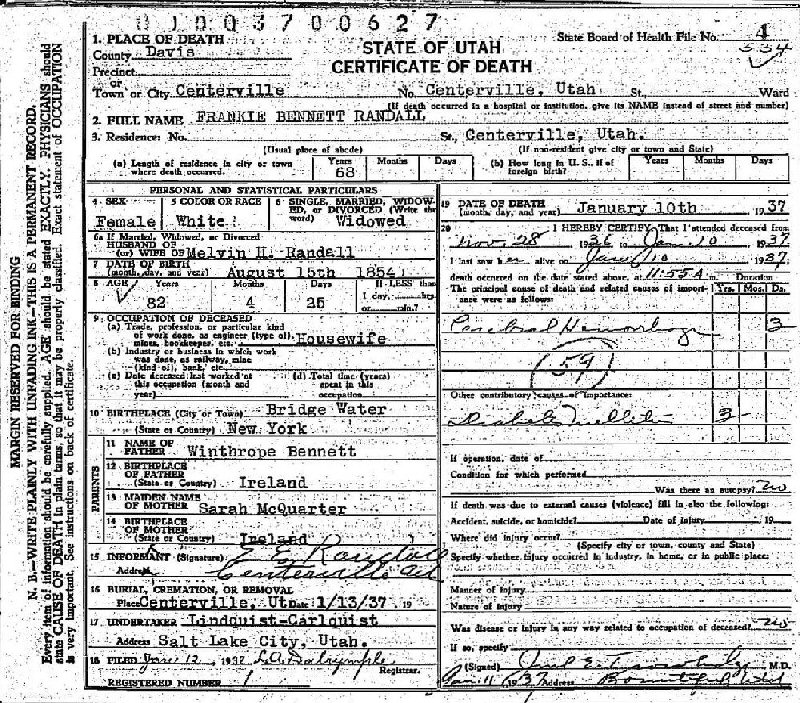 010037 00627
1. PLACE OF DEATH
State Board of Health File No. 4
County Davis
STATE OF UTAH
334
Precinct
CERTIFICATE OF DEATH
or
Town or City Centerville No. Centerville, Utah St. Ward
(If death occurred in a hospital or institution, give its NAME instead of street and number)
2. FULL NAME FRANKIE BENNETT RANDALL
3. Residence: No. St. Centerville, Utah.
(Usual place of abode) (If non-resident give city or town and State)
(a) Length of residence in city or town where death occurred. Years 68 Months Days
(b) How long in U. S., if of foreign birth? Years Months Days
PERSONAL AND STATISTICAL PARTICULARS
4 SEX Female
5 COLOR OR RACE White
6 SINGLE, MARRIED, WIDOWED, or DIVORCED (Write the word) Widowed
6a If Married, Widowed, or Divorced
HUSBAND OF
(or) WIFE OF Melvin H. Randall
7 DATE OF BIRTH
(month, day, and year) August 15th 1854
8 AGE Years Months Days If LESS than
82 4 25 1 day, hrs.
or min.?
9 OCCUPATION OF DECEASED
(a) Trade, profession, or particular kind
of work done, as engineer (type of),
miner, bookkeeper, etc. Housewife
(b) Industry or business in which work
was done, as railway, mine
(kind of), bank, etc.
(c) Date deceased last worked at
this occupation (month and
year)
(d) Total time (years)
spent in this
occupation
10 BIRTHPLACE (City or Town) Bridge Water
(State or Country) New York
PARENTS
11 NAME OF
FATHER Winthrope Bennett
12 BIRTHPLACE
OF FATHER
(State or Country) Ireland
13 MAIDEN NAME
OF MOTHER Sarah McQuarter
14 BIRTHPLACE
OF MOTHER
(State or Country) Ireland
15 INFORMANT (Signature) E. E. Randall
Address Centerville
16 BURIAL, CREMATION, OR REMOVAL
Place Centerville, Ut Date 1/13/37 19
17 UNDERTAKER Lindquist-Carlquist
Address Salt Lake City, Utah.
18 FILED Jan 12, 1937 L.A. Dalrymple
Registrar.
REGISTERED NUMBER 1
19 DATE OF DEATH
(month, day, and year) January 10th 1937
20 I HEREBY CERTIFY, That I attended deceased from
Nov. 28 1936 to Jan 10 1937
I last saw her alive on Jan 10 1937
death occurred on the date stated above, at 11:55 A m. Duration
The principal cause of death and related causes of importance were as follows: Yrs. Mos. Da.
Cerebral Hemorrhage 3
(59)
Other contributory causes of importance:
Diabetes Mellitus 3 -
If operation, date of
Condition for which performed
Was there an autopsy? no
If death was due to external causes (violence) fill in also the following:
Accident, suicide, or homicide? Date of injury 19
Where did injury occur?
(Specify city or town, county and State)
Specify whether injury occurred in industry, in home, or in public place:
Manner of injury
Nature of injury
Was disease or injury in any way related to occupation of deceased? no
If so, specify
(Signed) M.D.
Jan. 11 1937 Address Bountiful Utah
MARGIN RESERVED FOR BINDING
N. B.—WRITE PLAINLY WITH UNFADING INK—THIS IS A PERMANENT RECORD.
Every item of information should be carefully supplied. AGE should be stated EXACTLY. PHYSICIANS should
state CAUSE OF DEATH in plain terms, so that it may be properly classified. Exact statement of OCCUPATION
is very important. See instructions on back of certificate.